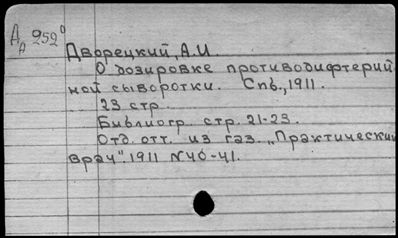 Д 252⁰
А
Дворецкий, А.И.
О дозировке противодифтерий
ной сыворотки. Спб., 1911.
23 стр.
Библиогр. стр. 21-23.
Отд. отт. из газ. „Практический
врач". 1911 N40-41.